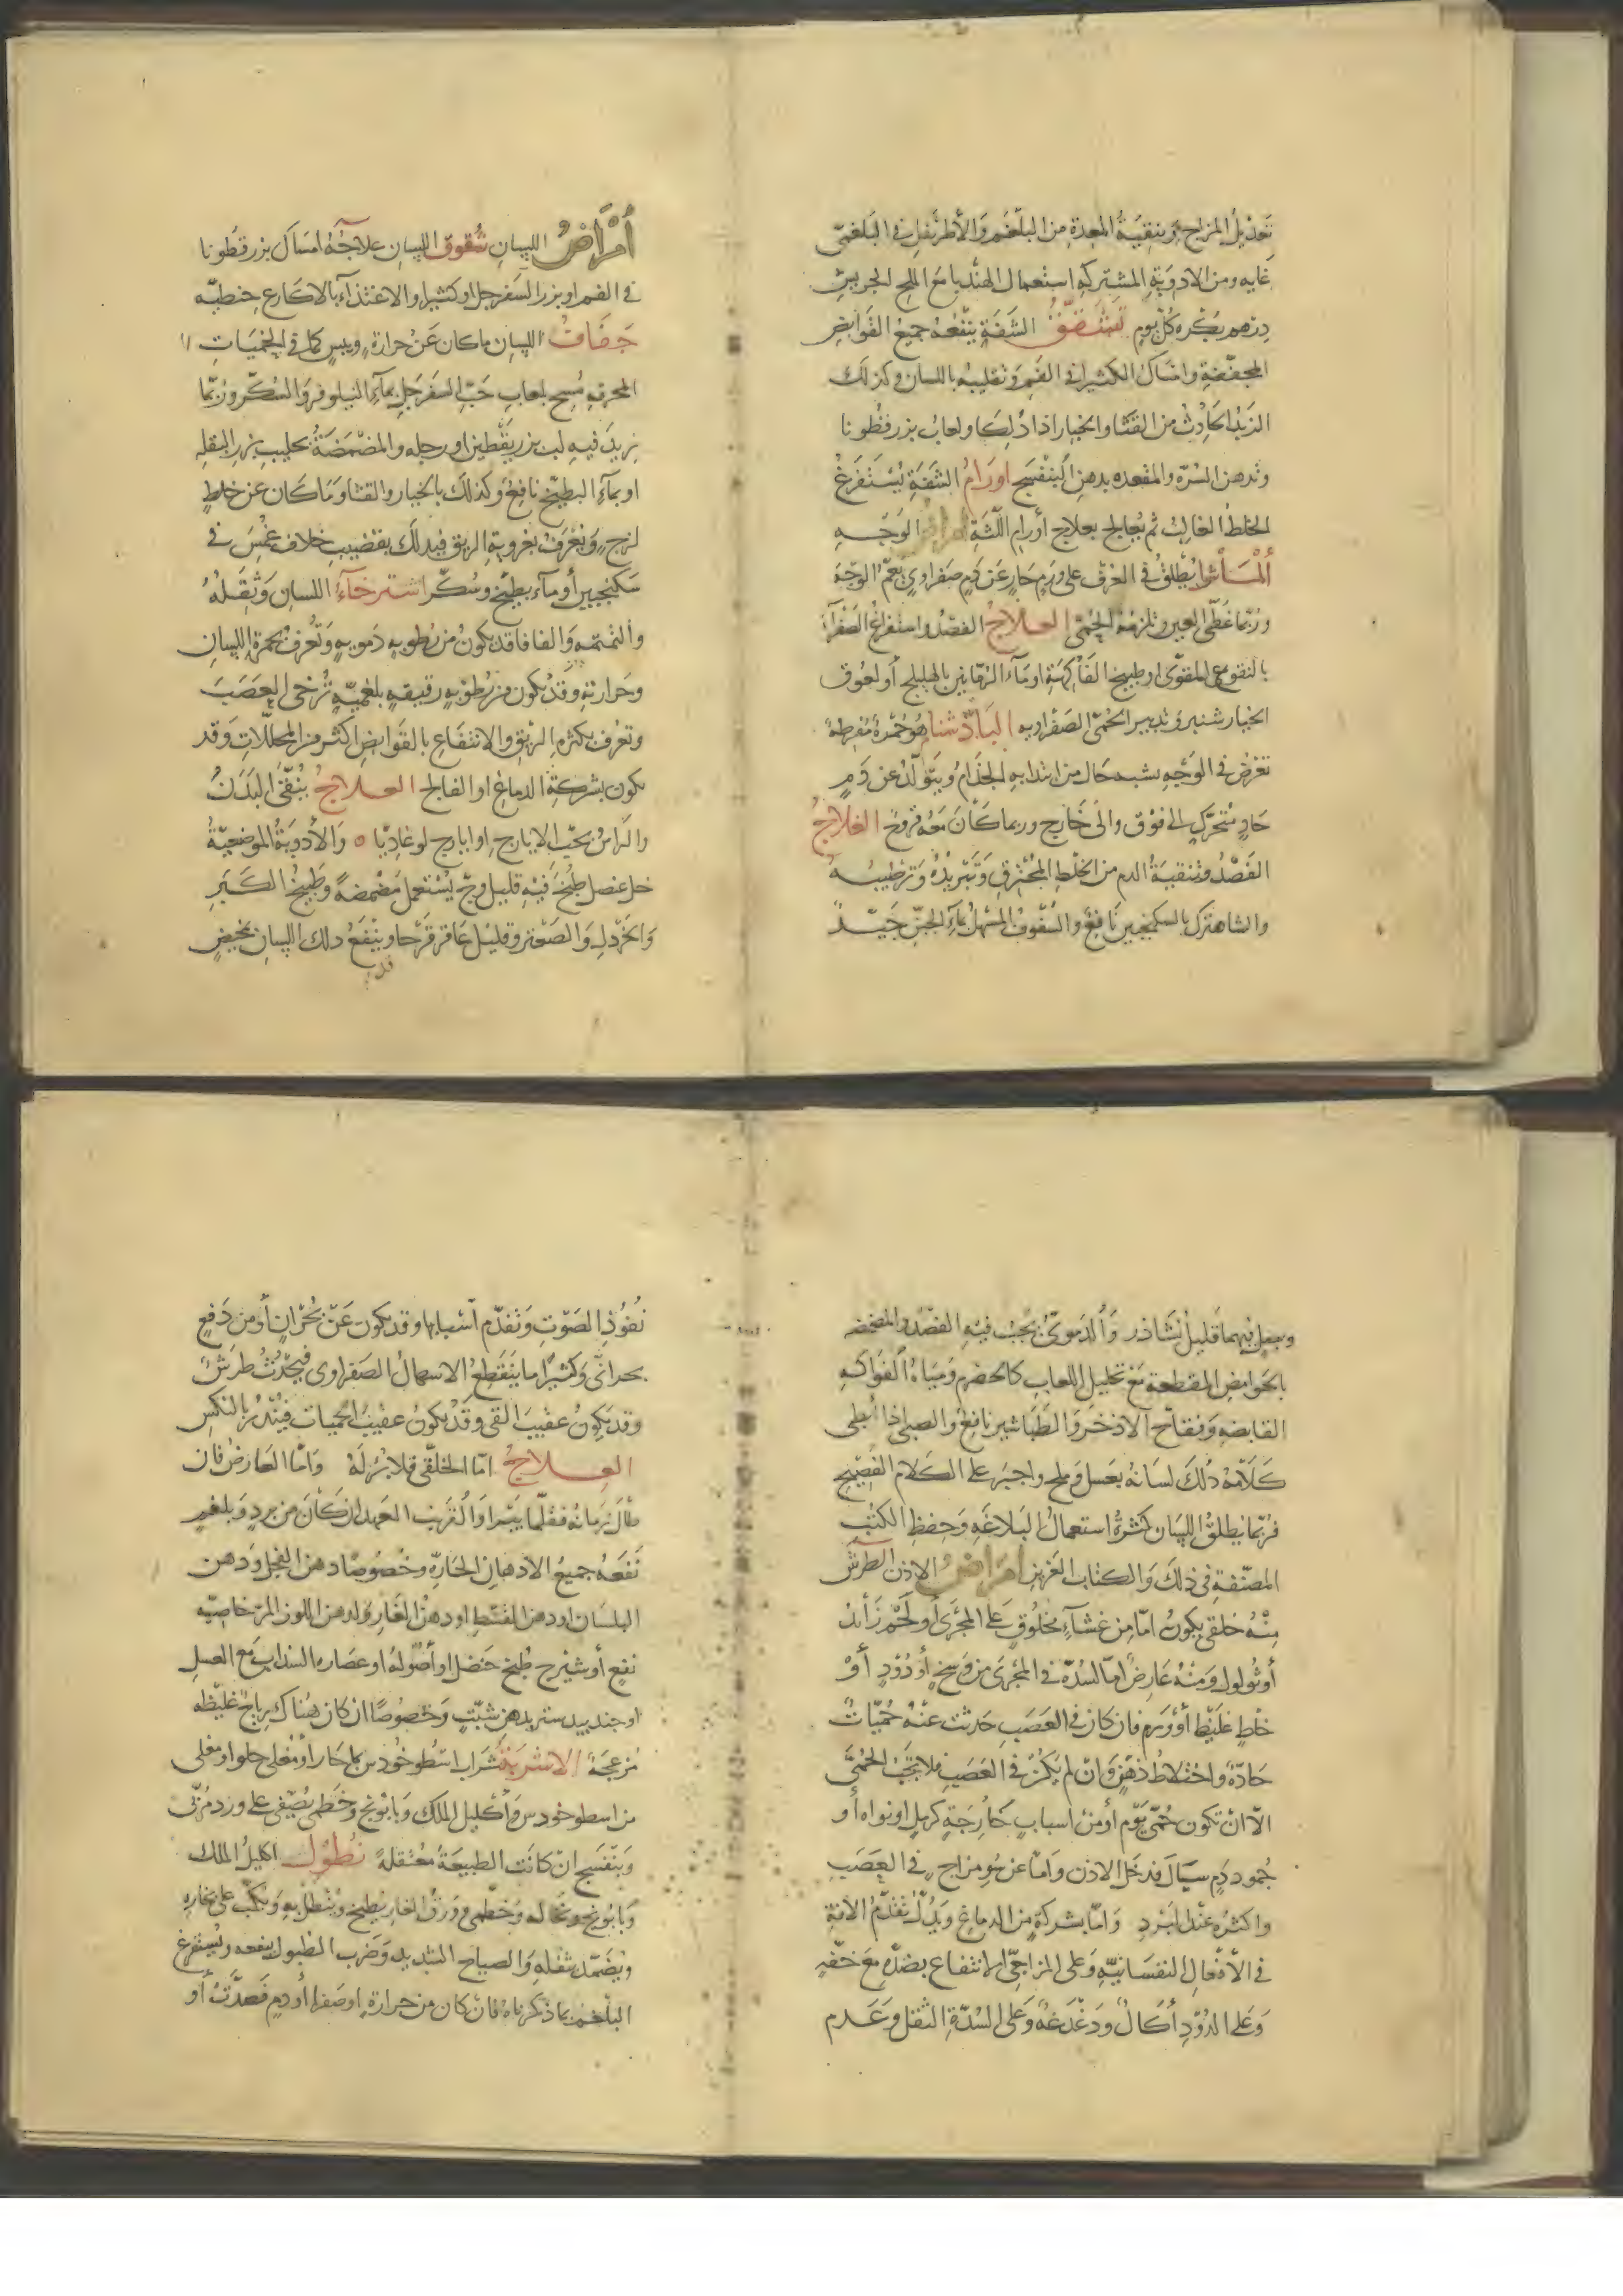 تعديل المزاج وتنقية المعدة من البلغم والأطريفل في البلغمي
غايه ومن الادوية المشتركه استعمال الهندبا مع الملح الجريش
درهم بكره كل يوم تشقق الشفة ينفعه جميع القوابض
المجففة وامساك الكثيرا في الفم وتقليبه باللسان وكذلك
الزبد الحادث من القثا والخيار اذا دلكا ولعاب بزرقطونا
وتدهن السرة والمقعده بدهن البنفسج اورام الشفة يستفرغ
الخلط الغالب ثم يعالج بعلاج أورام اللثة امراض الوجه
ألماشرا يطلق في العرف على ورم حار عن دم صفراوي يعم الوجه
وربما غطى العين وتلزمه الحمى العلاج الفصد واستفراغ الصفرآ
بالنقوع المقوى او طبيخ الفاكهة او مآء الرمانين بالهليلج أو لعوق
الخيار شنبر وتدبير الحمى الصفراويه البادشنام هو حمرة مفرطة
تعرض في الوجه يشبه حال من ابتدا به الجذام ويتولد عن دم
حاد متحرك الى فوق والى خارج وربما كان معه قروح العلاج
الفصد وتنقية الدم من الخلط المحترق وتبريده وترطيبه
والشاهترك بالسكنجبين نافع والسفوف المسهل بمآء الجبن جيد
أمراض اللسان شقوق اللسان علاجه امساك بزرقطونا
في الفم او بزر السفرجل او كثيرا والاغتذآء بالاكارع حنطيه
جفاف اللسان ما كان عن حرارة ويبس كما في الحميات
المحرقه مسح بلعاب حب السفرجل بمآء النيلوفر والسكر وربما
زيد فيه لب بزر يقطين او رجله والمضمضة بحليب بزر البقله
او بمآء البطيخ نافع وكذلك بالخيار والقثا وما كان عن خلط
لزج ويعرف بغروية الريق فيدلك بقضيب خلاف غمس في
سكنجبين أو مآء بطيخ وسكر استرخآء اللسان وثقله
والتمتمه والفافا قد يكون من رطوبه دمويه وتعرف بحمرة اللسان
وحرارته وقد يكون من رطوبه رقيقه بلغميه ترخى العصب
وتعرف بكثرة الريق والانتفاع بالقوابض اكثر من المحللات وقد
يكون بشركة الدماغ او الفالج العلاج ينقى البدن
والراس بحب الايارج او ايارج لوغاديا ه والأدوية الموضعية
خل عنصل طبخ فيه قليل وج يستعمل مضمضة وطبيخ الكبر
والخردل والصعتر وقليل عاقرقرحا وينفع دلك اللسان بمخيض
قد
ويجعل فيهما قليل نشاذر والدموى يجب فيه الفصد والمضمضه
بالحوامض المقطعة مع تحليل اللعاب كالحصرم ومياه الفواكه
القابضه وفقاح الاذخر والطباشير نافع والصبى اذا أبطى
كلامه دلك لسانه بعسل وملح واجبر على الكلام الفصيح
فربما يطلق اللسان كثرة استعمال البلاغه وحفظ الكتب
المصنفة في ذلك والكتاب العزيز امراض الاذن الطرش
منه خلقى يكون اما من غشاء مخلوق على المجرى أو لحم زائد
أو ثولول ومنه عارض اما لسدة في المجرى من وسخ أو دود أو
خلط غليظ أو ورم فان كان في العصب حدثت عنه حميات
حادة واختلاط ذهن وان لم يكن في العصب فلا تجب الحمى
الا ان تكون حمى يوم أو من اسباب خارجة كرمل او نواه أو
جمود دم سيال قد دخل الاذن واما عن سوء مزاج في العصب
واكثره عند البرد واما بشركة من الدماغ ويدل تقدم الافة
في الأفعال النفسانية وعلى المزاجى الانتفاع بضده مع خفه
وعلى الدود أكال ودغدغه وعلى السدة الثقل وعدم
نفوذ الصوت وتقدم أسبابها وقد يكون عن بحران أو من دفع
بحرانى وكثيرا ما ينقطع الاسهال الصفراوى فيحدث طرش
وقد يكون عقيب القى وقد يكون عقيب الحميات فينذر بالنكس
العلاج اما الخلقى فلا برء له واما العارض فان
طال زمانه فقلما يبرا والقريب العهد ان كان من برد وبلغم
نفعه جميع الادهان الحارة وخصوصا دهن الفجل ودهن
البلسان او دهن القسط او دهن الغار ولدهن اللوز المر خاصيه
نفع أو شيرج طبخ حنضل او أصوله او عصاره السذاب مع العسل
او جندبيدستر بدهن شبت وخصوصا ان كان هناك رياح غليظه
مزعجة الاشربة شراب اسطوخودس بماء حار أو مغلى حلو او مغلى
من اسطوخودس واكليل الملك وبابونج وخطمى يصفى على ورد مربى
وبنفسج ان كانت الطبيعة معتقلة نطول اكليل الملك
وبابونج ونخاله وخطمى وورق الغار يطبخ وينطل به ويكب على بخاره
ويضمد بثفله والصياح الشديد وضرب الطبول ينفعه ويستفرغ
البلغم بما ذكرناه فان كان من حرارة او صفرا أو دم فصدت أو